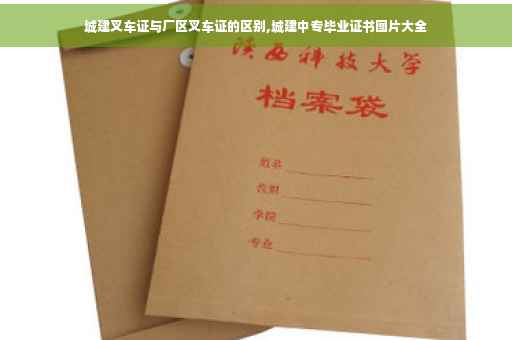 城建叉车证与厂区叉车证的区别,城建中专毕业证书图片大全
陕西科技大学
档案袋
姓名
学院
专业